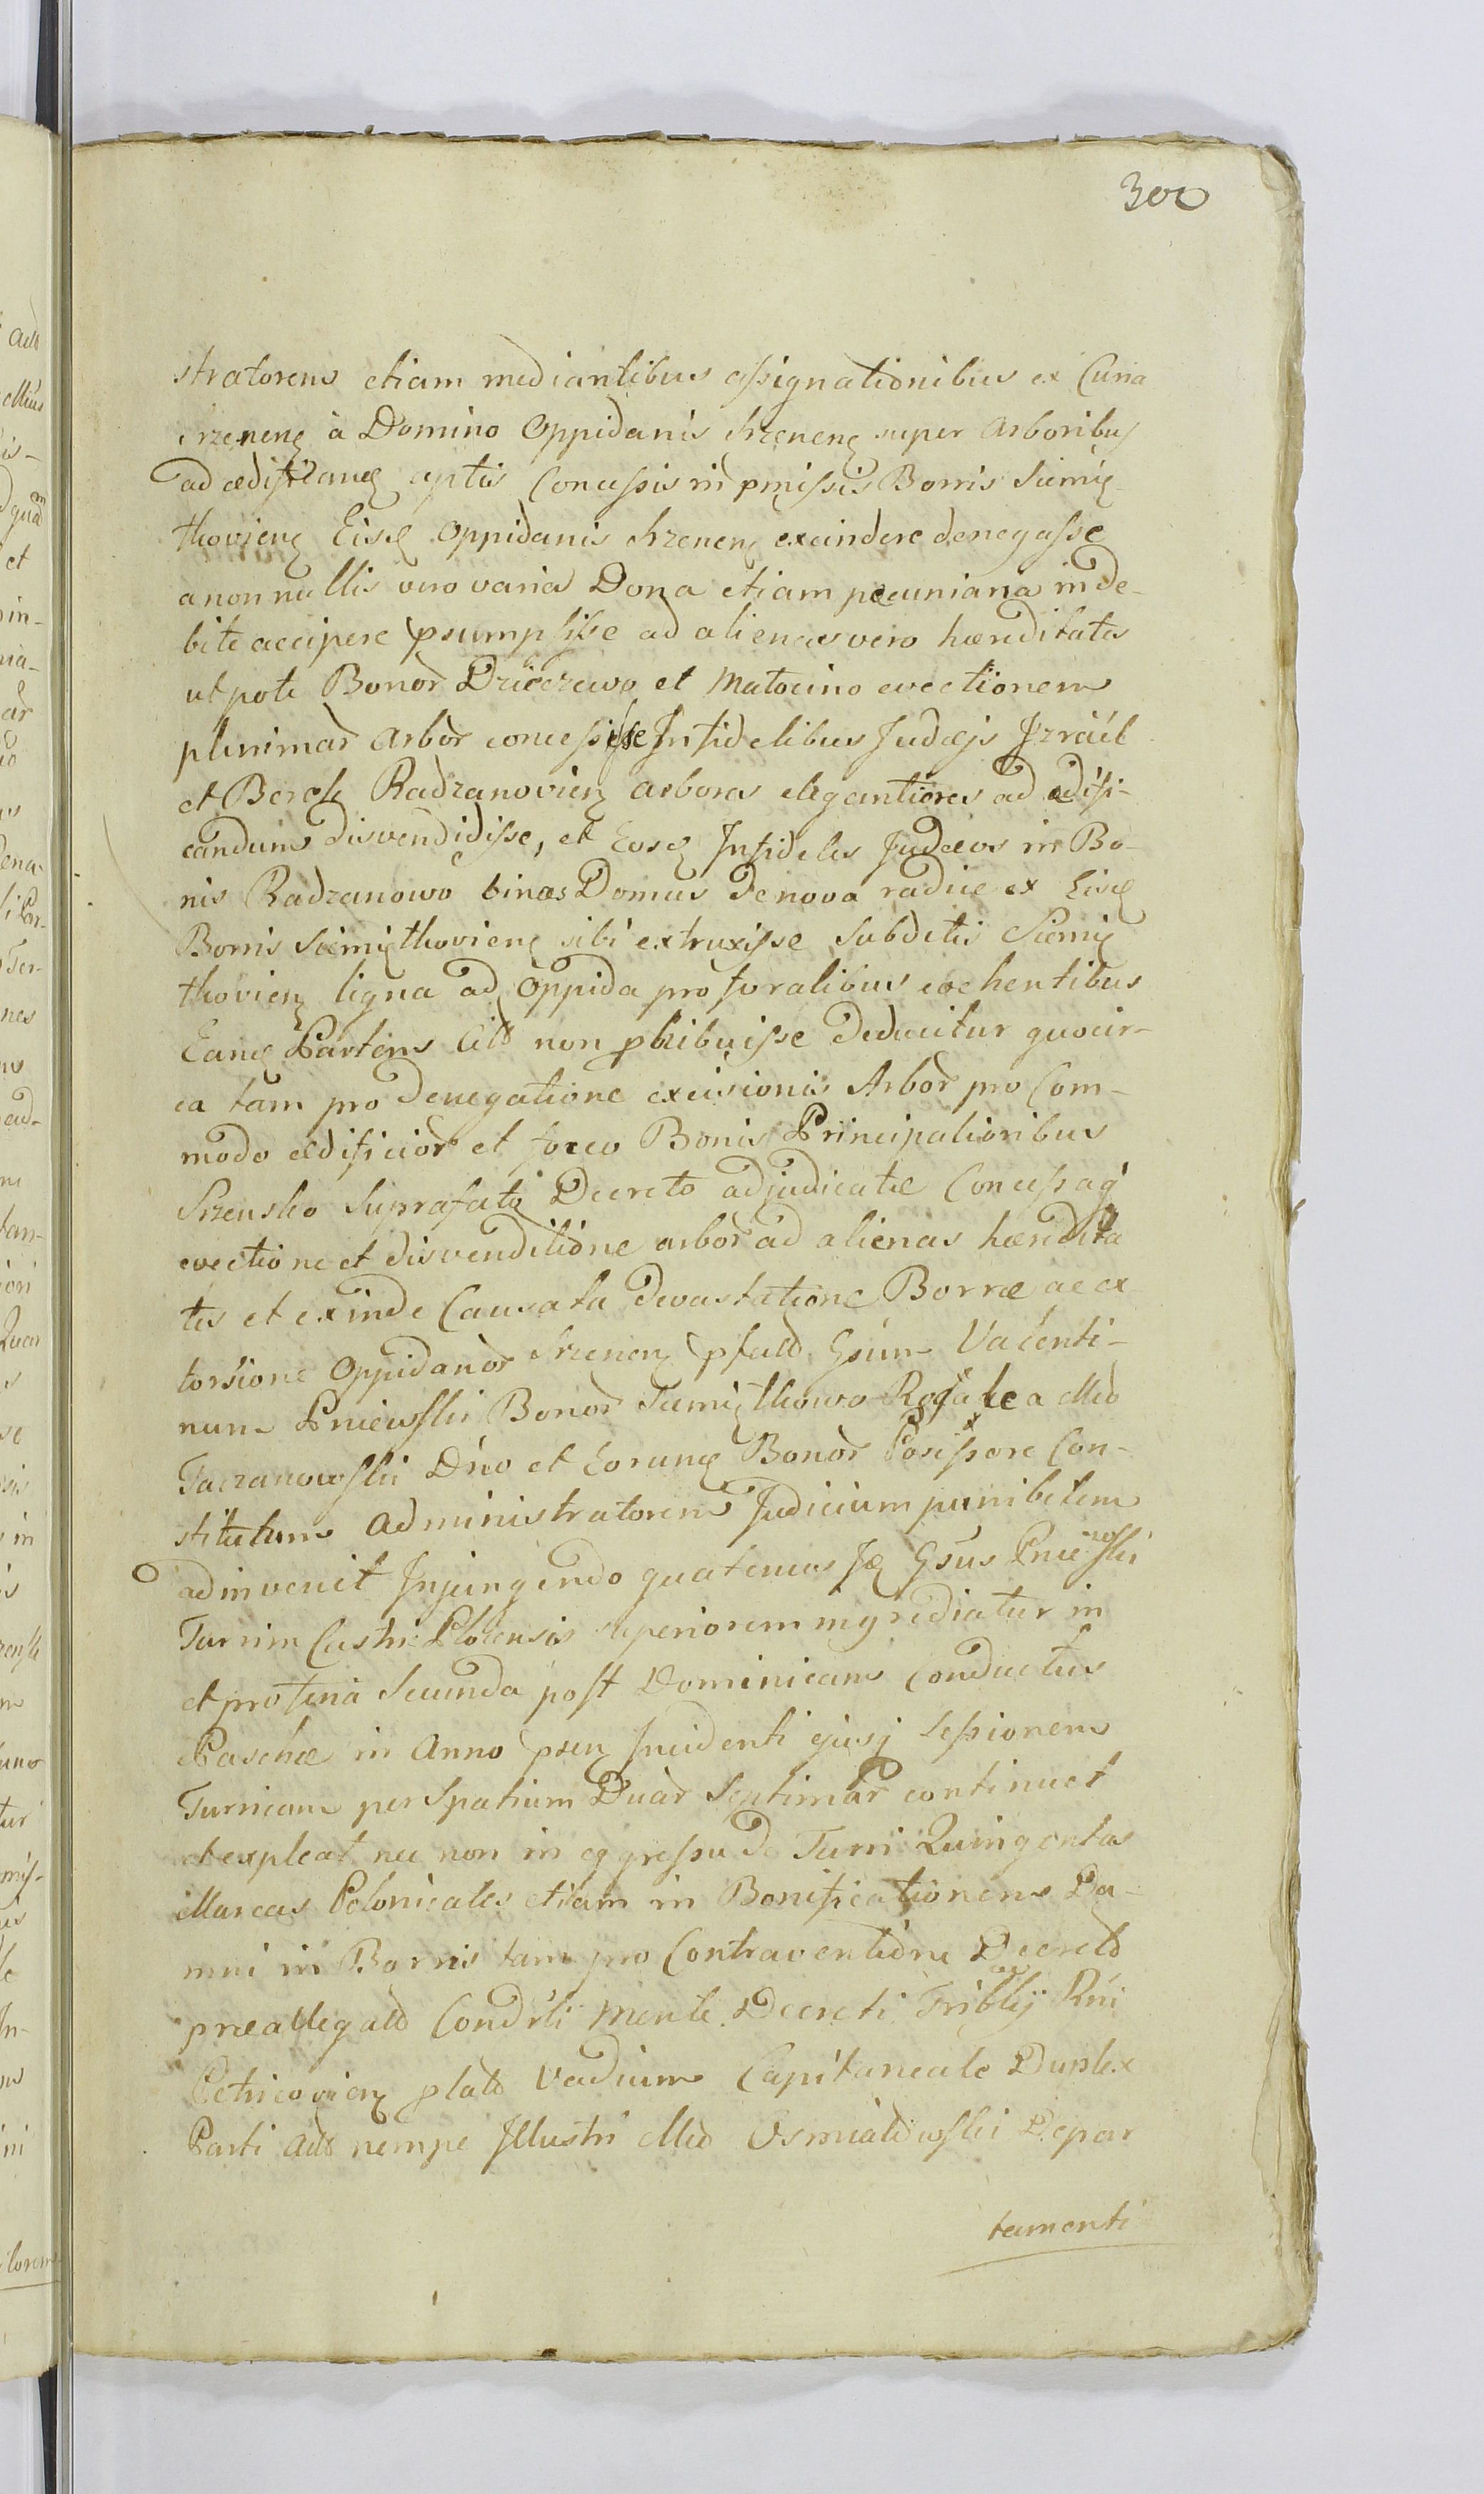 300
stratorem etiam mediantibus assignationibus ex Curia
Srzenen à Domino Oppidanis Srzenen super Arboribus
ad ædifican aptis Concessis in pmissis Borris Siemię-
thovien Eisd Oppidanis Srzenen exeindere denegasse
a nonnullis vero varia Dona etiam pecuniaria inde-
bite accipere psumpsisse ad alienas vero hæreditates
utpote Bonor Dzieczewo et Matocino evectionem
plurimar Arbor concessisse Infidelibus Judæjs Izraël
et Berek Radzanovien arbores elegantiores ad ædifi-
candum disvendidisse, et Eosd Infideles Judæos in Bo-
nis Radzanowo binas Domus de nova radice ex Eisd
Borris Siemięthovien sibi extruxisse Subditis Siemię
thovien ligna ad Oppida pro foralibus evehentibus
Eand Partem Citt non phibuisse deducitur quocir-
ca tam pro denegatione excisionis Arbor pro Com-
modo ædificior et foco Bonis Principalioribus
Szensko Suprafato Decreto adjudicatæ Concessaq
evectione et disvenditione arbor ad alienas hæredita
tes et exinde Causata devastatione Borræ ac ex
torsione Oppidanor Srzenen pfatt Gsum Valenti-
num Pniewski Bonor Siemięthowo Rogale a Mco
Taczanowskii Dno et Eorund Bonor Possessore Con-
stitutum Administratorem Judicium punibilem
adinvenit Injungendo quatenus Id Gsus Pniewski
Turrim Castri Plocensis superiorem ingrediatur in
et pro feria Secunda post Dominicam Conductus
Paschæ in Anno psen Incidenti ejusq Sessionem
Turricam per Spatium Duar Septimar continuet
et expleat nec non in eggressu de Turri Quingentas
Marcas Polonicales etiam in Bonificationem Da-
mni in Borris tam pro Contraventione Decreto
præallegatt Condrli mente Decreti Triblis Rni
Petricovien platt Vadium Capitaneale Duplex
Parti Actt nempe Illustri Mco Osmiałowskii Depar
tamenti